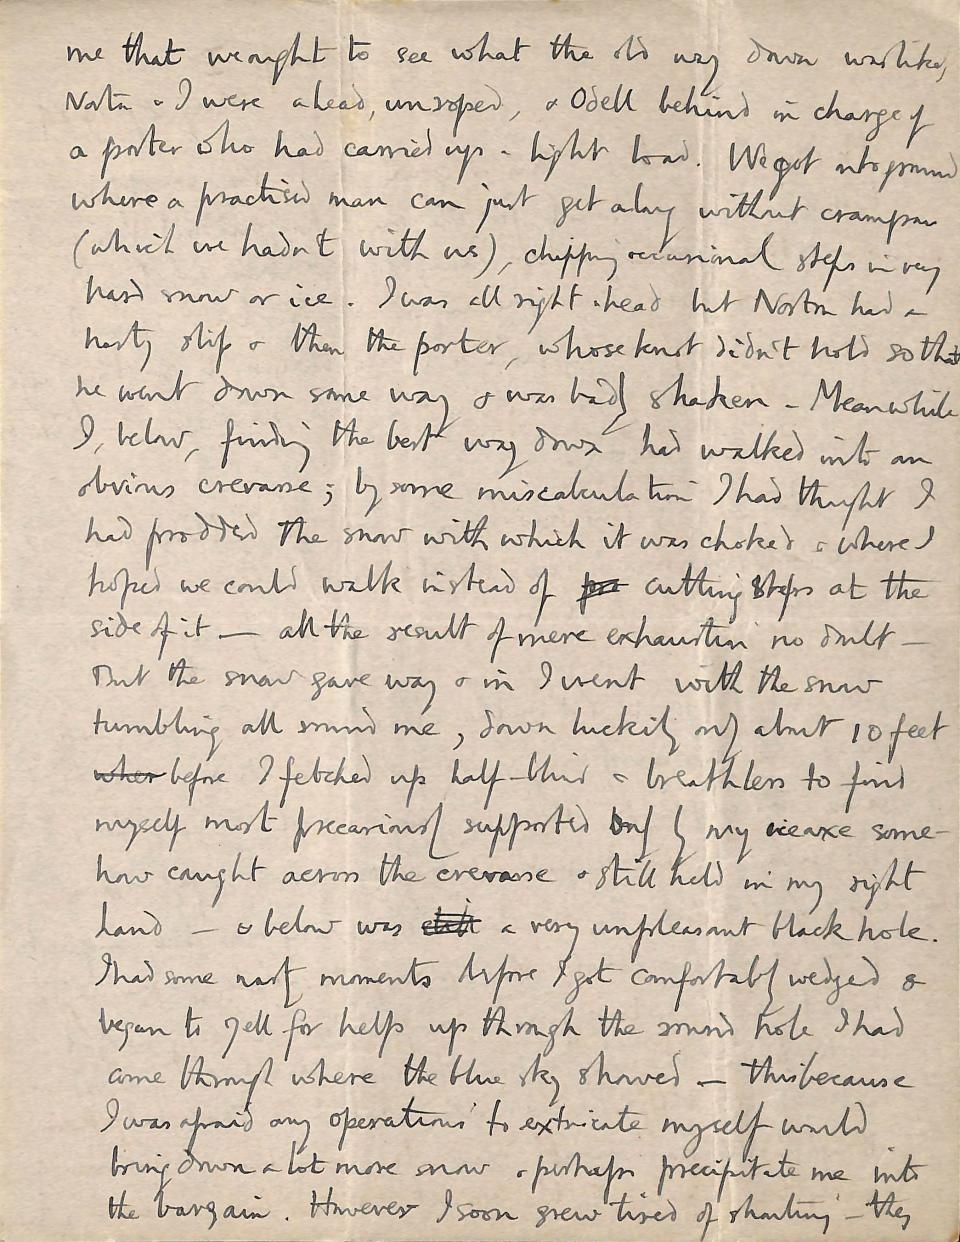 me that we ought to see what the old way down was like,
Norton & I were ahead, unroped, & Odell behind in charge of
a porter who had carried up a light load. We got onto ground
where a practised man can just get along without crampons
(which we hadn't with us), chipping occasional steps in very
hard snow or ice. I was all right ahead but Norton had a
nasty slip & then the porter, whose knot didn't hold so that
he went down some way & was badly shaken – Meanwhile
I, below, finding the best way down had walked into an
obvious crevasse; by some miscalculation I had thought I
had prodded the snow with which it was choked & where I
hoped we could walk instead of cutting steps at the
side of it — all the result of mere exhaustion no doubt —
But the snow gave way & in I went with the snow
tumbling all round me, down luckily only about 10 feet
when before I fetched up half-blind & breathless to find
myself most precariously supported only by my ice axe some-
how caught across the crevasse & still held in my right
hand — & below was a very unpleasant black hole.
I had some nasty moments before I got comfortably wedged &
began to yell for help up through the round hole I had
come through where the blue sky showed — this because
I was afraid any operations to extricate myself would
bring down a lot more snow & perhaps precipitate me into
the bargain. However I soon grew tired of shouting – they